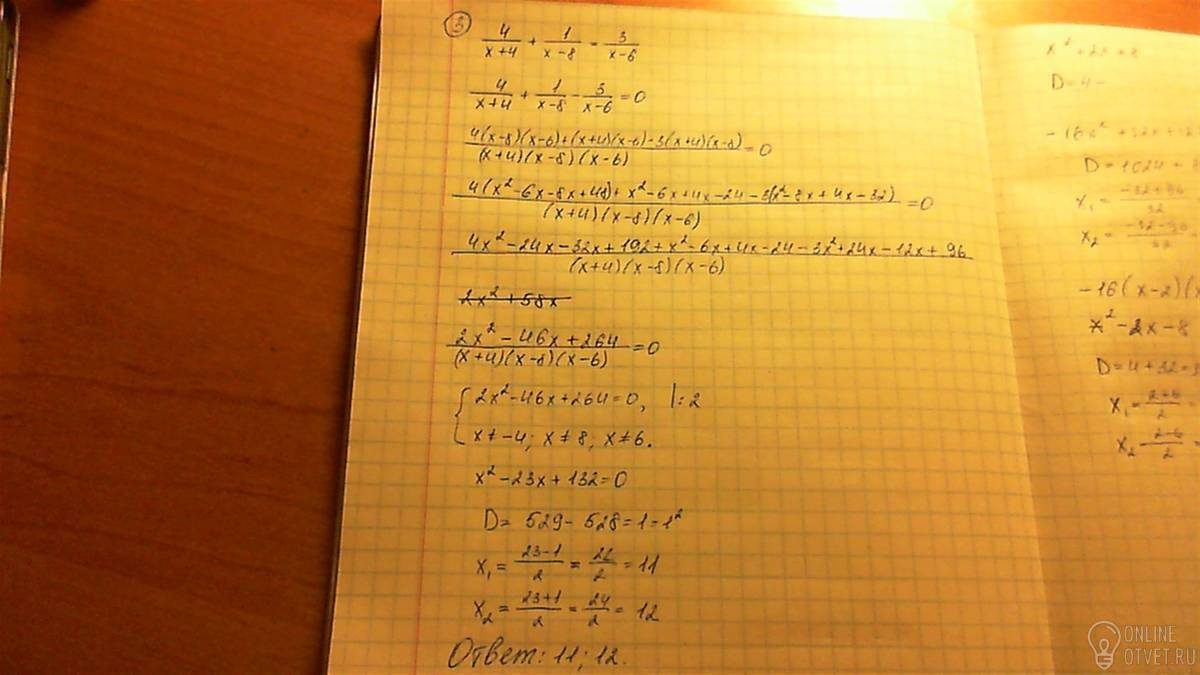 3
4/(x+4) + 1/(x-8) = 3/(x-6)
4/(x+4) + 1/(x-8) - 3/(x-6) = 0
(4(x-8)(x-6)+(x+4)(x-6)-3(x+4)(x-8))/((x+4)(x-8)(x-6)) = 0
(4(x²-6x-8x+48)+x²-6x+4x-24-3(x²-8x+4x-32))/((x+4)(x-8)(x-6)) = 0
(4x²-24x-32x+192+x²-6x+4x-24-3x²+24x-12x+96)/((x+4)(x-8)(x-6))
2x²+58x
(2x²-46x+264)/((x+4)(x-8)(x-6)) = 0
{ 2x²-46x+264=0, |:2
x≠-4; x≠8; x≠6.
x²-23x+132=0
D= 529-528=1=1²
x₁ = (23-1)/2 = 22/2 = 11
x₂ = (23+1)/2 = 24/2 = 12
Ответ: 11; 12.
D=4-
D=1024+
x₁=
x₂=
-16(x-2)(x
x²-2x-8
D=4+32=3
x₁=
x₂=
ONLINE
OTVET.RU